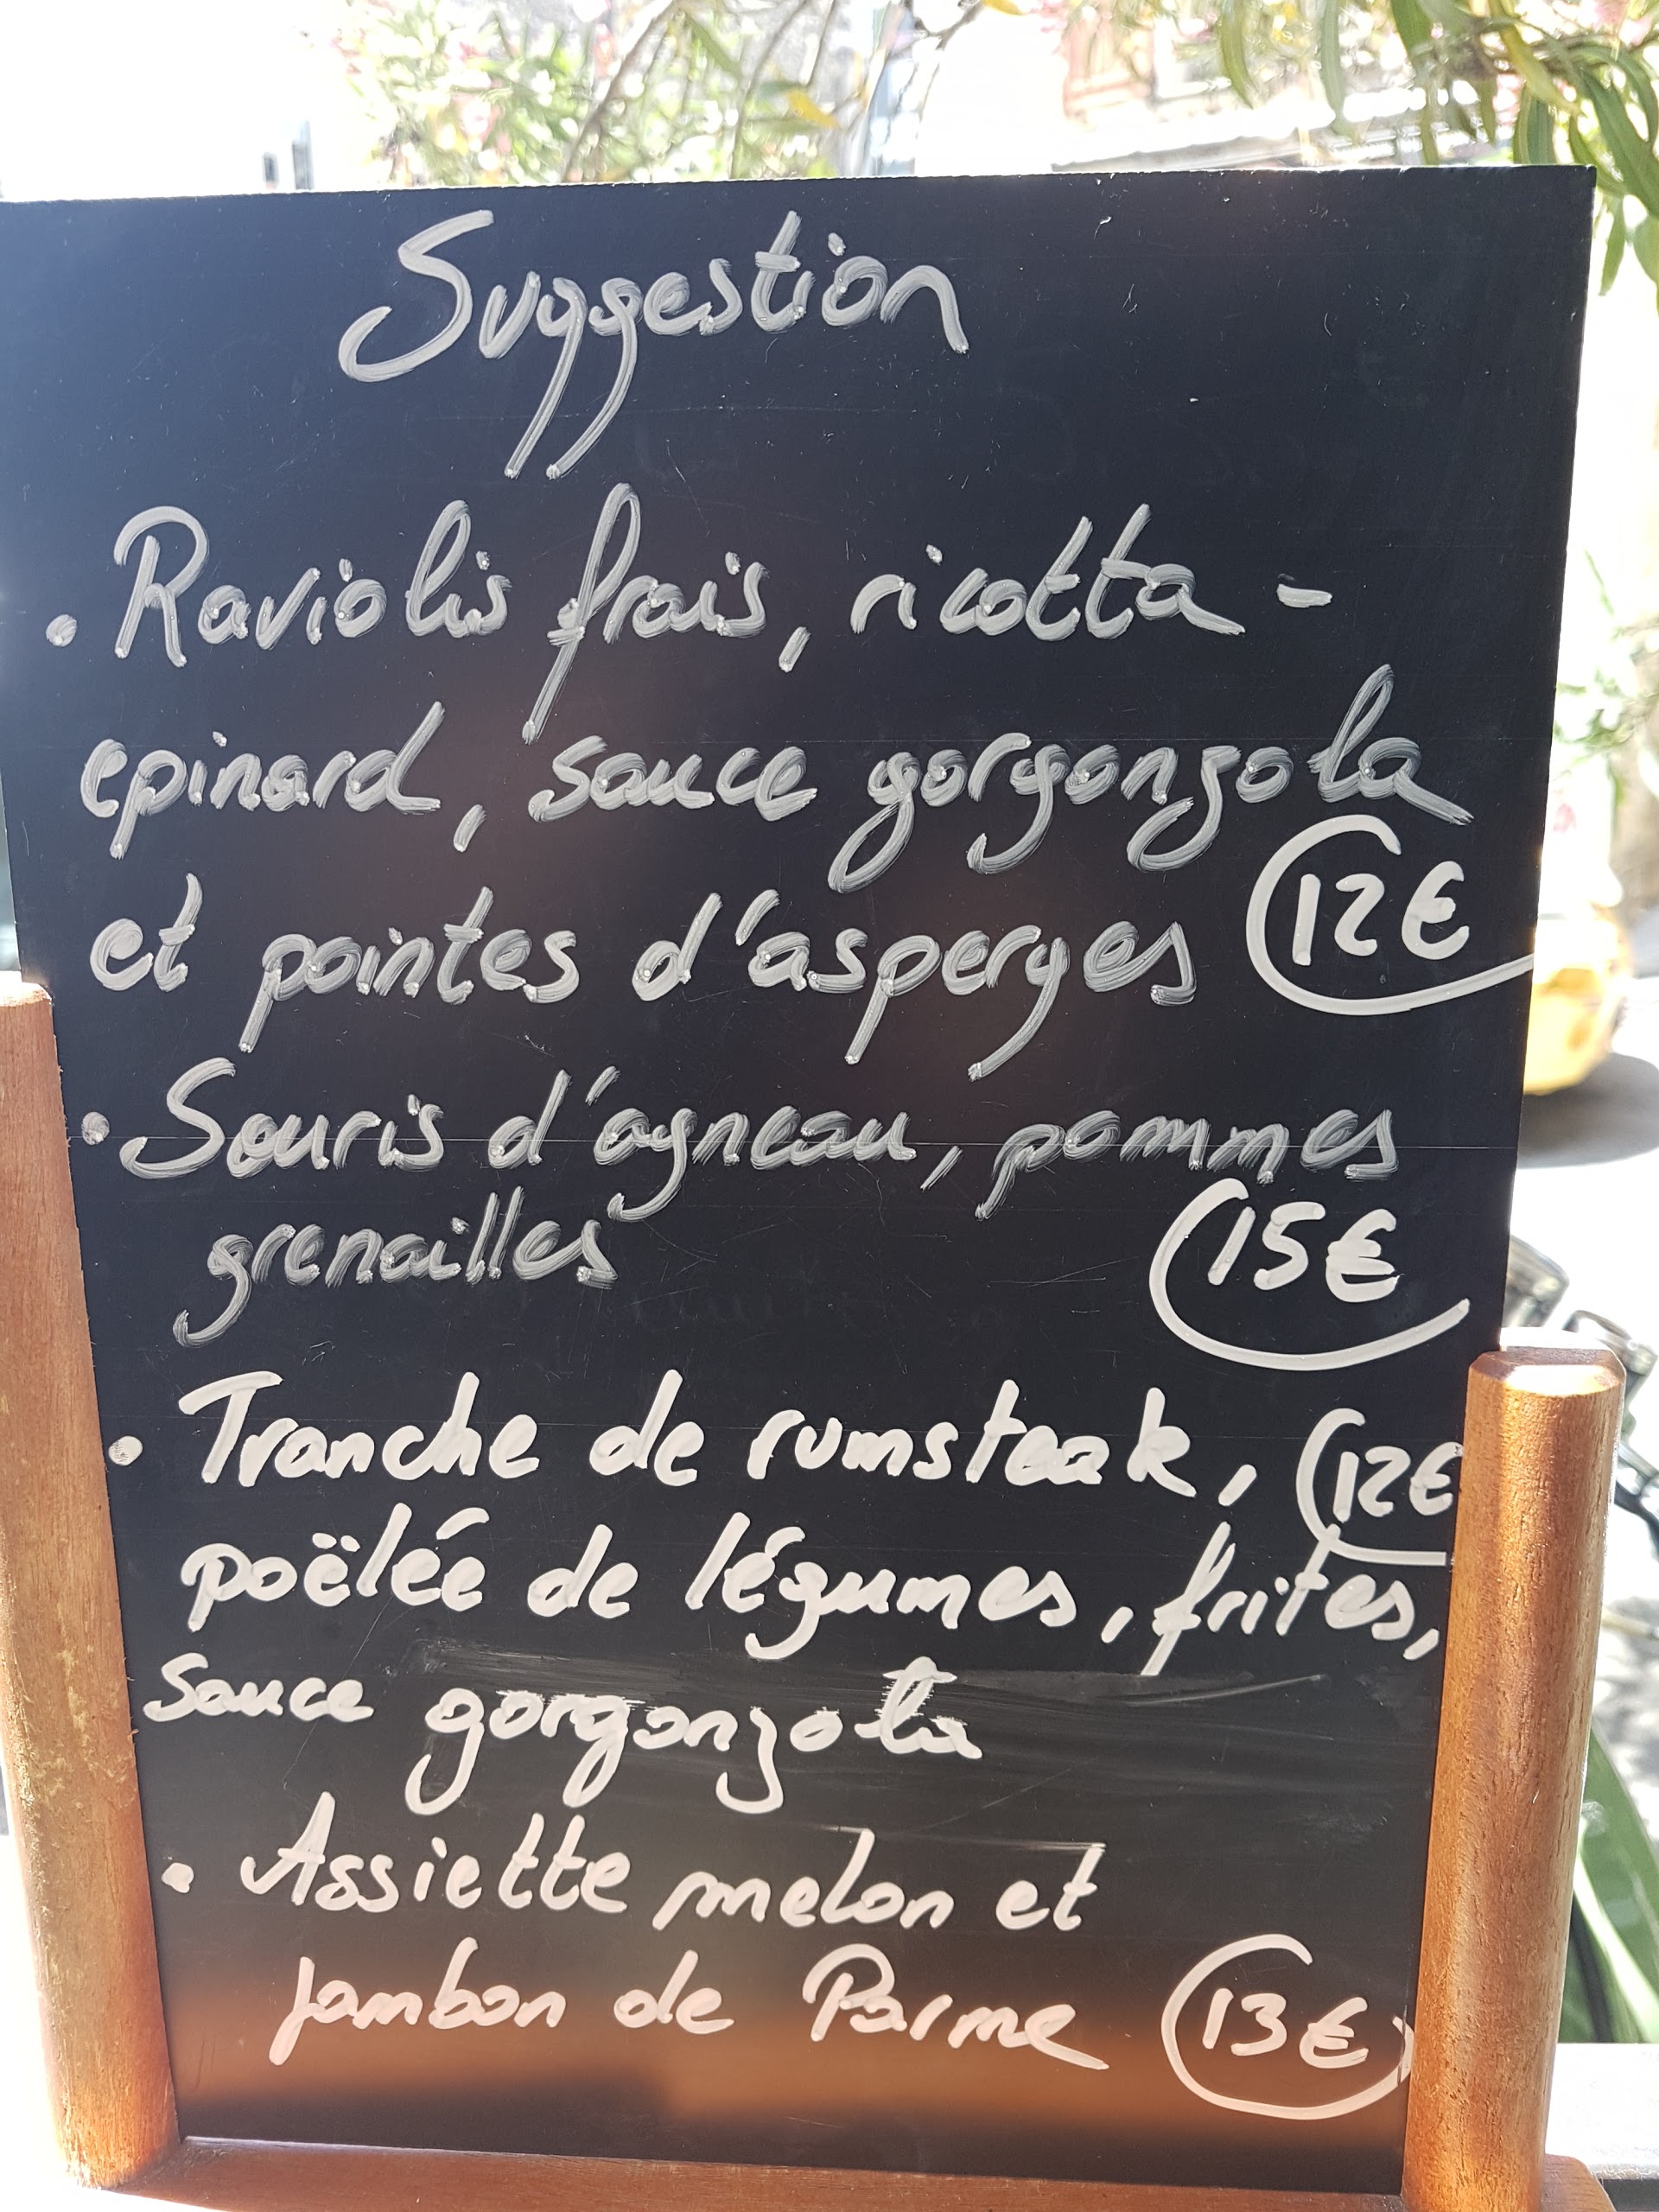 Suggestion
. Raviolis frais, ricotta -
epinard, sauce gorgonzola
et pointes d'asperges 12€
. Souris d'agneau, pommes
grenailles 15€
. Tranche de rumsteak, 12€
poëlée de légumes, frites,
sauce gorgonzola
. Assiette melon et
jambon de Parme 13€